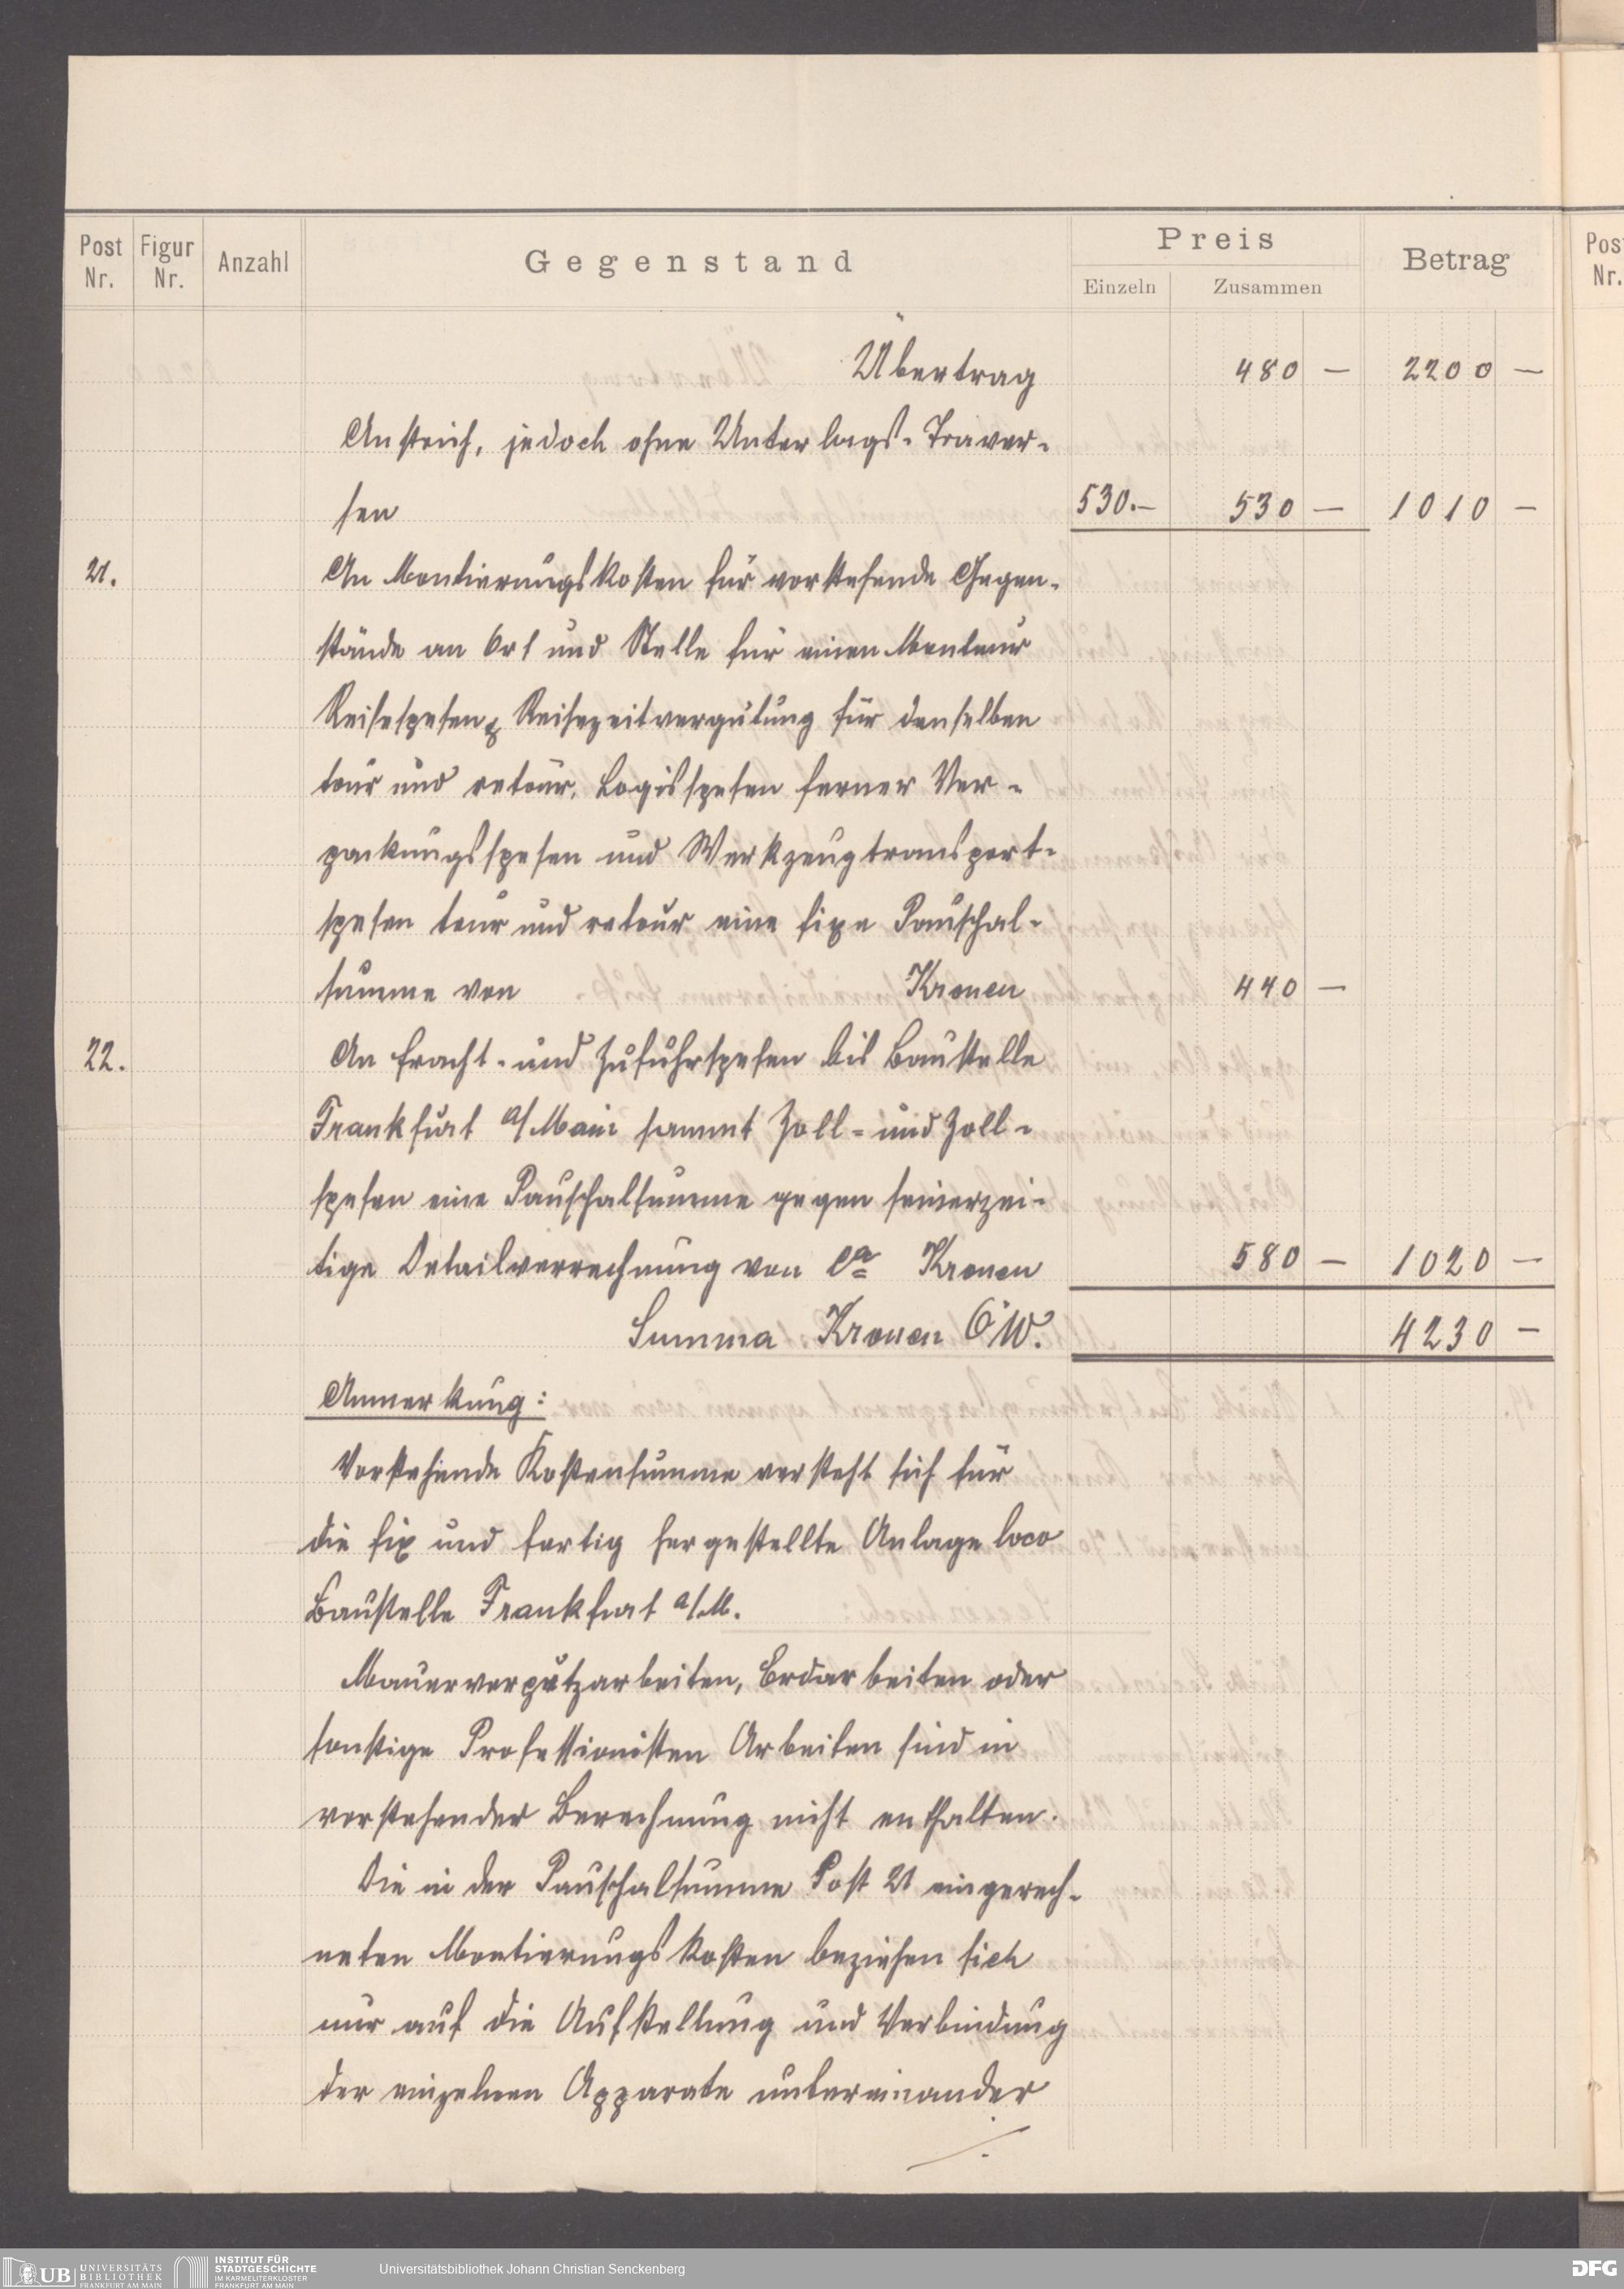 Post Nr. Figur Nr. Anzahl Gegenstand Preis Einzeln Zusammen Betrag
Übertrag 480 — 2200 —
Anstrich, jedoch ohne Unterlags-Traver-
sen 530.— 530 — 1010 —
21. An Montierungskosten für vorstehende Gegen-
stände an Ort und Stelle für einen Monteur
Reisespesen, Reisezeitvergütung für denselben
tour und retour, Logisspesen ferner Ver-
packungsspesen und Werkzeugtransport-
spesen tour und retour eine fixe Pauschal-
summe von Kronen 440 —
22. An Fracht- und Zufuhrspesen bis Baustelle
Frankfurt a/Main sammt Zoll- und Zoll-
spesen eine Pauschalsumme gegen seinerzei-
tige Detailverrechnung von ca Kronen 580 — 1020 —
Summa Kronen ÖW. 4230 —
Anmerkung:
Vorstehende Kostensumme versteht sich für
die fix und fertig hergestellte Anlage loco
Baustelle Frankfurt a/M.
Mauerverputzarbeiten, Erdarbeiten oder
sonstige Professionisten Arbeiten sind in
vorstehender Berechnung nicht enthalten.
Die in der Pauschalsumme Post 21 eingerech-
neten Montierungskosten beziehen sich
nur auf die Aufstellung und Verbindung
der einzelnen Apparate untereinander
./.
Post Nr.
UB UNIVERSITÄTS BIBLIOTHEK FRANKFURT AM MAIN
INSTITUT FÜR STADTGESCHICHTE IM KARMELITERKLOSTER FRANKFURT AM MAIN
Universitätsbibliothek Johann Christian Senckenberg
DFG